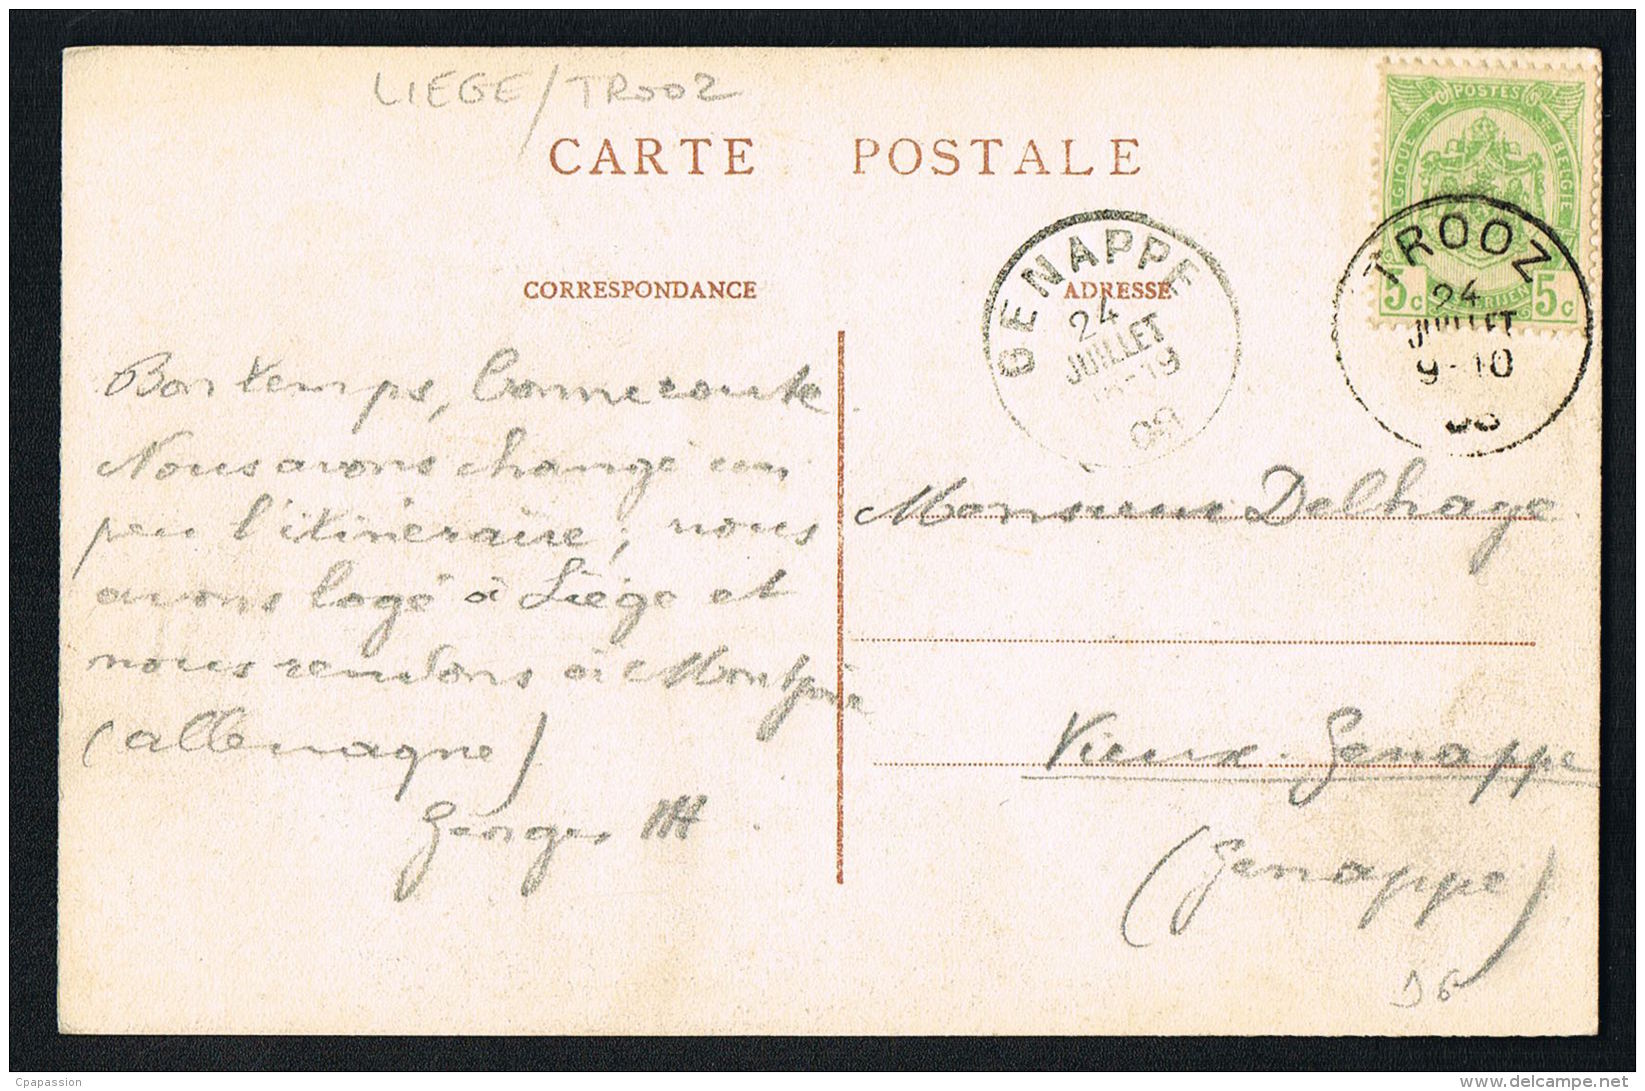 LIEGE/TROOZ
CARTE POSTALE
POSTES
BELGIQUE BELGIE
5c 5c
TROOZ
24
JUILLET
9-10
08
GENAPPE
24
JUILLET
18-19
08
CORRESPONDANCE
ADRESSE
Bon temps, bonne route.
Nous avons changé un
peu l'itinéraire; nous
avons logé à Liège et
nous rendons à Montjoie
(allemagne)
Georges
Monsieur Delhage
Vieux-Genappe
(Genappe)
D6
Cpapassion
www.delcampe.net